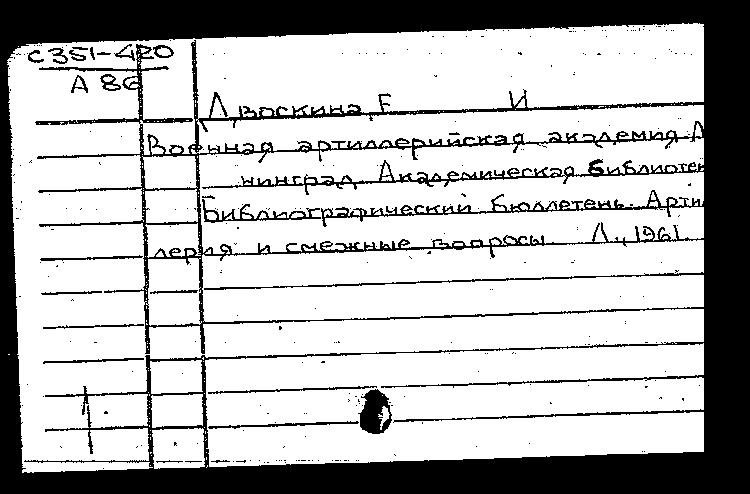 С 351-420
А 86
Двоскина, Е И
Военная артиллерийская академия Л
нинград. Академическая библиотек
Библиографический бюллетень. Арти
лерия и смежные вопросы Л., 1961.